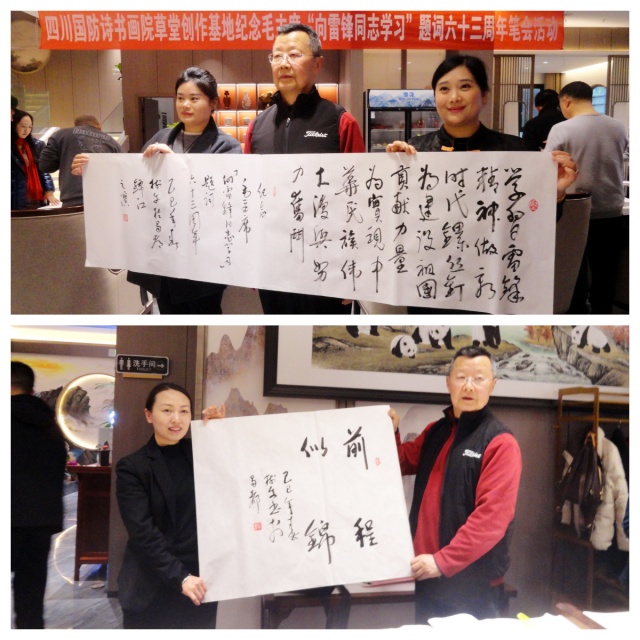 四川国防诗书画院草堂创作基地纪念毛主席“向雷锋同志学习”题词六十三周年笔会活动
Titleist
学习雷锋
精神做新
时代螺丝钉
为建设祖国
贡献力量
为实现中
华民族伟
大复兴努
力奋斗
毛主席
向雷锋同志学习
题词
六十三周年
乙巳年
洗手间
TOILET
Titleist
前程
似锦
乙巳年